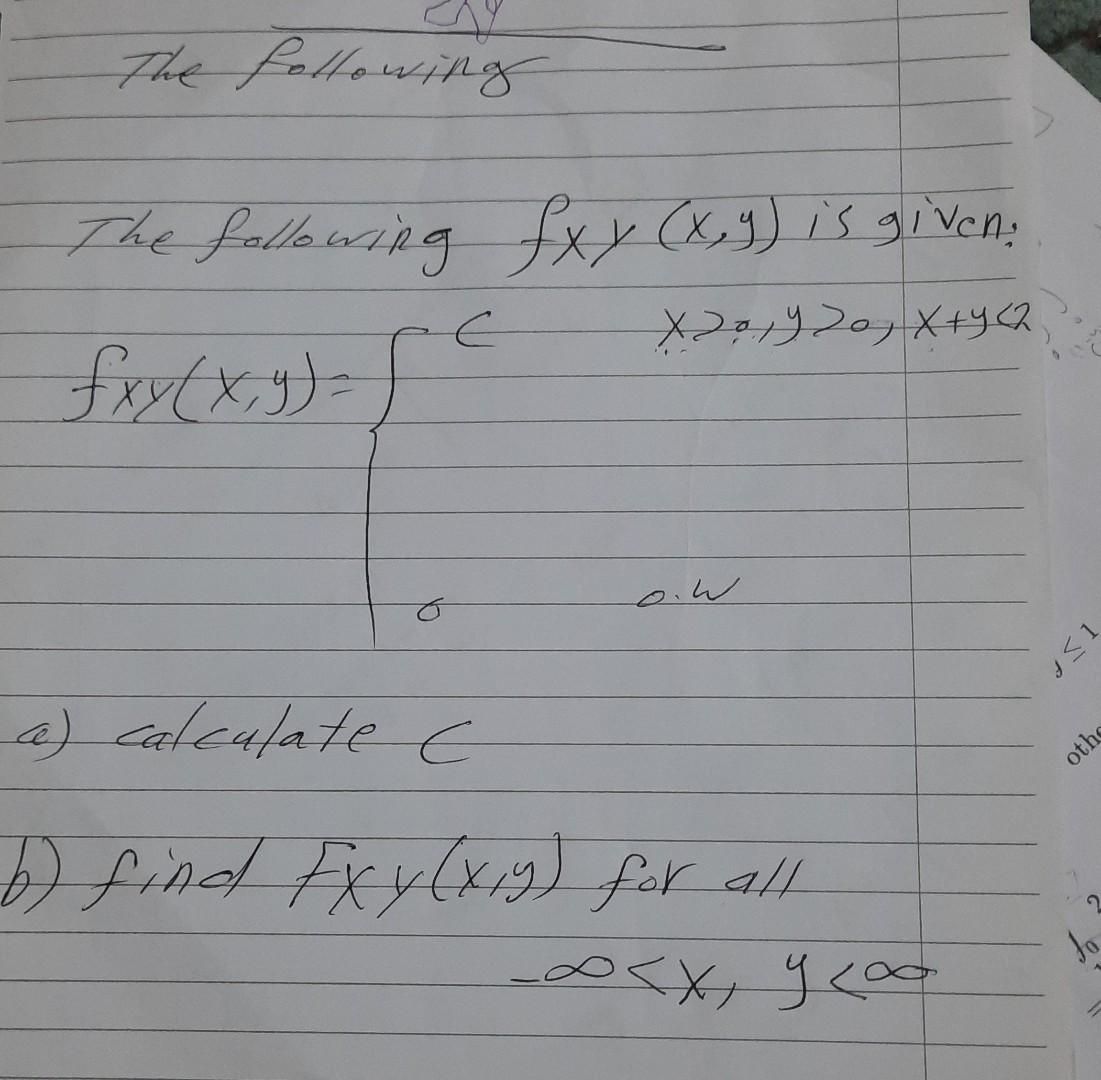 The following
The following fxy (x,y) is given:
fxy(x,y)= { C x>0, y>0, x+y<2
0 o.w
a) calculate C
b) find Fxy(x,y) for all
-∞<x, y<∞
≤ 1
othe